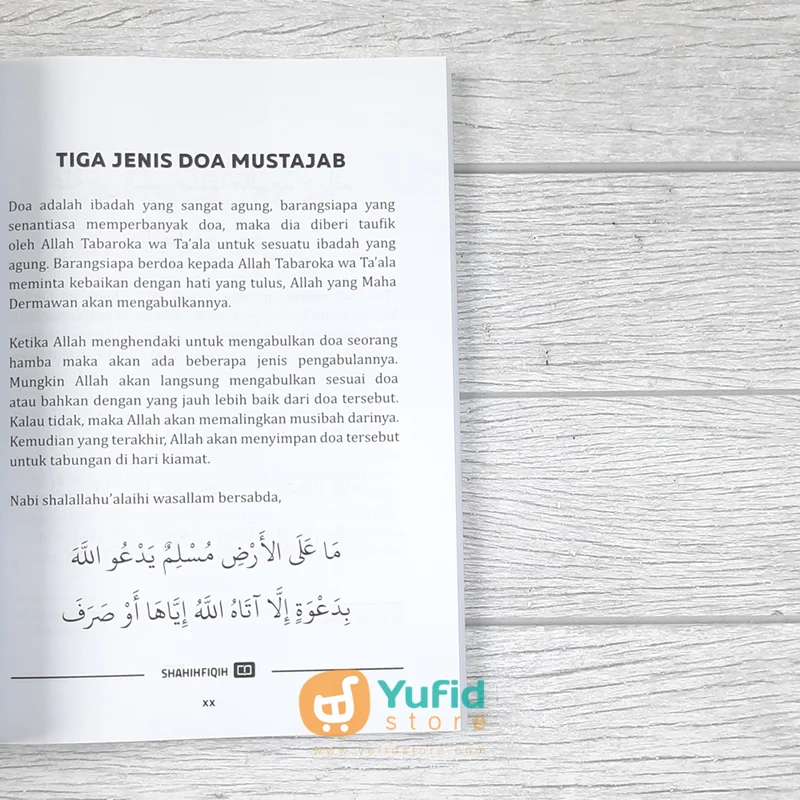 TIGA JENIS DOA MUSTAJAB
Doa adalah ibadah yang sangat agung, barangsiapa yang
senantiasa memperbanyak doa, maka dia diberi taufik
oleh Allah Tabaroka wa Ta'ala untuk sesuatu ibadah yang
agung. Barangsiapa berdoa kepada Allah Tabaroka wa Ta'ala
meminta kebaikan dengan hati yang tulus, Allah yang Maha
Dermawan akan mengabulkannya.
Ketika Allah menghendaki untuk mengabulkan doa seorang
hamba maka akan ada beberapa jenis pengabulannya.
Mungkin Allah akan langsung mengabulkan sesuai doa
atau bahkan dengan yang jauh lebih baik dari doa tersebut.
Kalau tidak, maka Allah akan memalingkan musibah darinya.
Kemudian yang terakhir, Allah akan menyimpan doa tersebut
untuk tabungan di hari kiamat.
Nabi shalallahu'alaihi wasallam bersabda,
مَا عَلَى الأَرْضِ مُسْلِمٌ يَدْعُو اللَّهَ
بِدَعْوَةٍ إِلَّا آتَاهُ اللَّهُ إِيَّاهَا أَوْ صَرَفَ
SHAHIHFIQIH
xx
Yufid
store
www.yufidstore.com